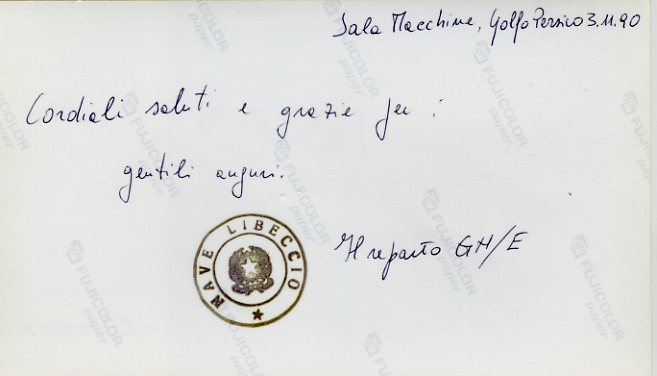 Sala Macchine, Golfo Persico 3.11.90
Cordiali saluti e grazie per i
gentili auguri.
Il reparto GN/E
NAVE LIBECCIO
FUJICOLOR
paper